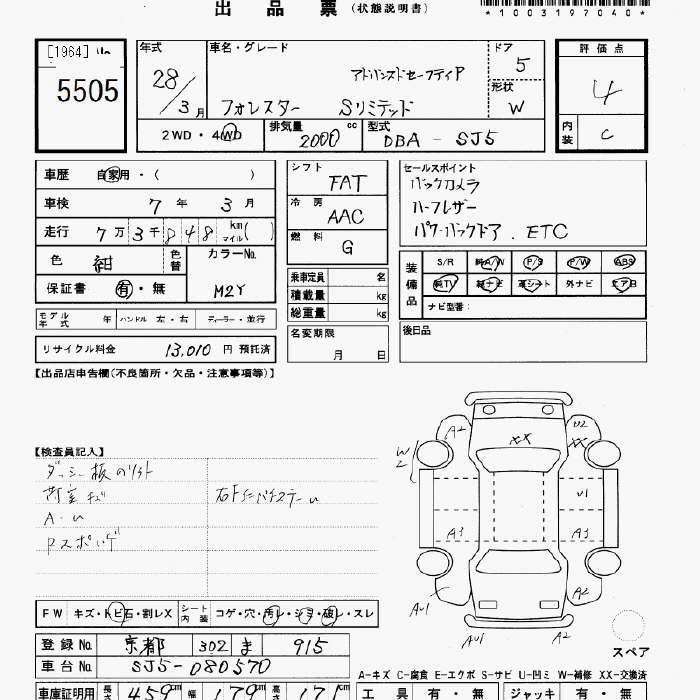 出品票 (状態説明書)
*1003197040*
[1964]
5505
年式 28／3月
車名・グレード
アドバンスドセーフティP
フォレスター Sリミテッド
ドア 5
形状 W
評価点 4
内装 C
2WD・4WD
排気量 2000 cc
型式 DBA - SJ5
車歴 自家用・( )
車検 7年 3月
走行 7万3千848 km マイル( )
色 紺 色替
カラーNo. M2Y
保証書 有・無
シフト FAT
冷房 AAC
燃料 G
セールスポイント
バックカメラ
ハーフレザー
パワーバックドア. ETC
乗車定員 名
積載量 kg
総重量 kg
装備品
S/R 純A/W P/S P/W ABS
純TV 純ナビ 革シート 外ナビ エアB
ナビ型番:
モデル年式 年 ハンドル 左・右 ディーラー・並行
名変期限 月 日
後日品
リサイクル料金 13,010 円 預託済
【出品店申告欄(不良箇所・欠品・注意事項等)】
【検査員記入】
A2 U2
XX XX
W2
U1
A3 A3
A2
AU1 AU1 A2
スペア
FW キズ・トビ石・割レX
シート内装 コゲ・穴・汚レ・シミ・破レ・スレ
登録No. 京都 302 ま 915
車台No. SJ5-080570
A-キズ C-腐食 E-エクボ S-サビ U-凹ミ W-補修 XX-交換済
車庫証明用 長さ 459cm 幅 179cm 高さ 171cm
工具 有・無 ジャッキ 有・無